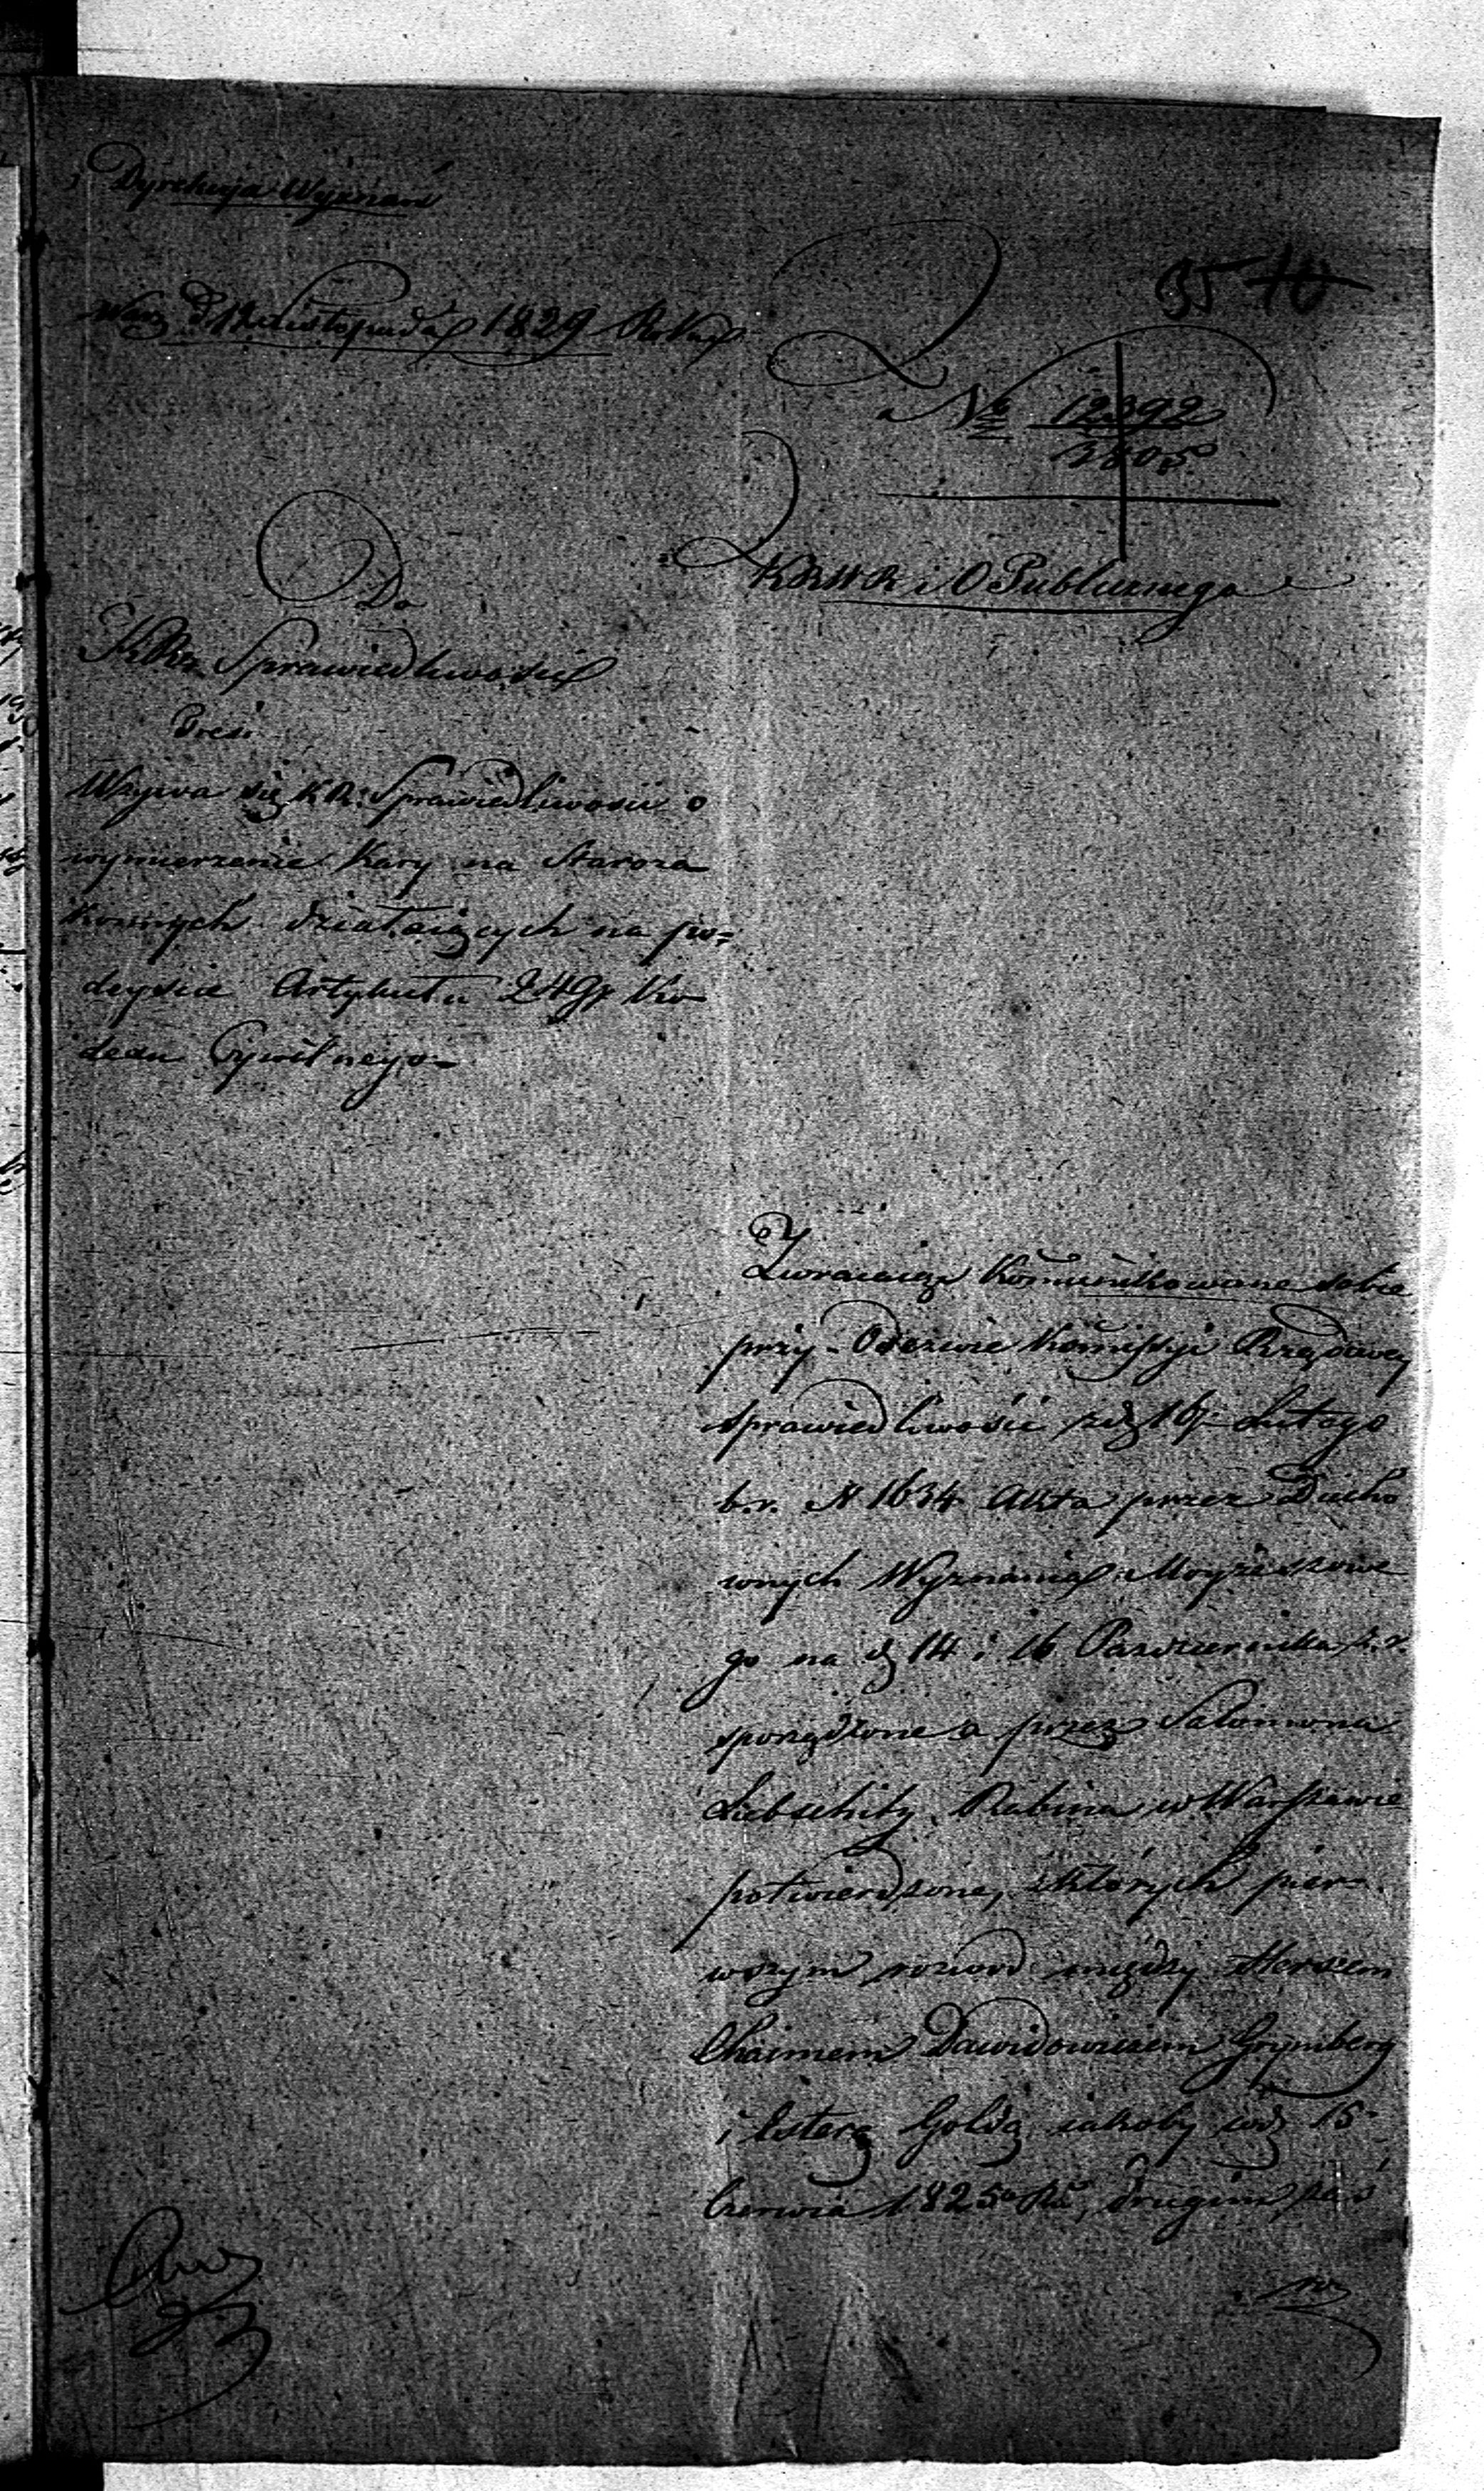 Dyrekcyja Wyznań
Warz d. 11 Listopada 1829 Roku
35 10
No 12392
3805
KRWR i O Publicznego
Do
KRz Sprawiedliwości
Treść
Wzywa się KR: Sprawiedliwości o
wymierzenie Kary na Staroza
konnych działaiących na po=
deyście Artykułu 249go Ko
dexu Cywilnego
Zwracaiąc komunikowane sobie
przy Odezwie Kommissyi Rządowey
Sprawiedliwości z d. 16 Lutego
b.r. N 1634 Akta przez Ducho
wnych Wyznania Moyżeszowe
go na d. 14 i 16 Pazdziernika z.r.
sporządzone a przez Salomona
Liebschity Rabina w Warszawie
potwierdzone, z których pier=
wszym rozwod między Herszem
Chaimem Dawidowiczem Grynberg
i Esterą Goldą iakoby w d. 15
Czerwca 1825 Rů, drugim zaś